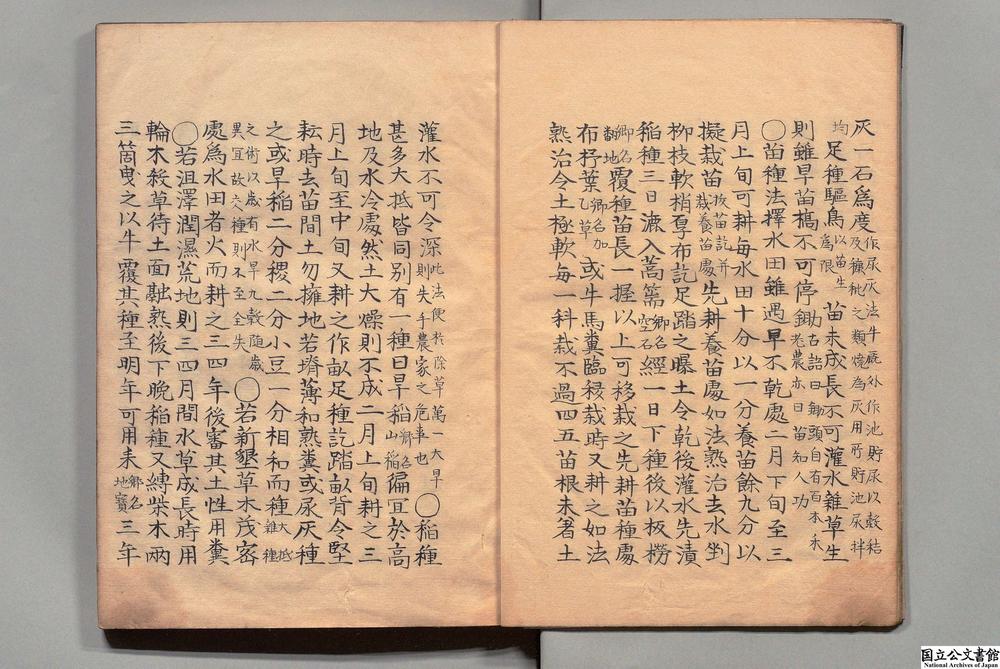 灰一石爲度作尿灰法牛廐外作池貯尿以穀秸及糠秕之類燒為灰用所貯池尿拌
均足種驅鳥以苗生為限苗未成長不可灌水雜草生
則雖旱苗槁不可停鋤古語曰鋤頭自有百本禾老農亦曰苗知人功
〇苗種法擇水田雖遇旱不乾處二月下旬至三
月上旬可耕每水田十分以一分養苗餘九分以
擬栽苗拔苗訖并栽養苗處先耕養苗處如法熟治去水剉
柳枝軟梢厚布訖足踏之曝土令乾後灌水先漬
稻種三日漉入蒿篅鄉名空石經一日下種後以板撈
鄉名翻地覆種苗長一握以上可移栽之先耕苗種處
布杼葉鄉名加乙草或牛馬糞臨移栽時又耕之如法
熟治令土極軟每一科栽不過四五苗根未著土
灌水不可令深此法便於除草萬一大旱則失手農家之危事也〇稻種
甚多大抵皆同別有一種曰旱稻鄉名山稻偏宜於高
地及水冷處然土大燥則不成二月上旬耕之三
月上旬至中旬又耕之作畝足種訖踏畝背令堅
耘時去苗間土勿擁地若塉薄和熟糞或尿灰種
之或旱稻二分稷二分小豆一分相和而種大抵雜種
之術以歲有水旱九穀隨歲異宜故交種則不至全失〇若新墾草木茂密
處爲水田者火而耕之三四年後審其土性用糞
〇若沮澤潤濕荒地則三四月間水草成長時用
輪木殺草待土面融熟後下晚稻種又縛柴木兩
三箇曳之以牛覆其種至明年可用耒鄉名地寶三年
国立公文書館
National Archives of Japan